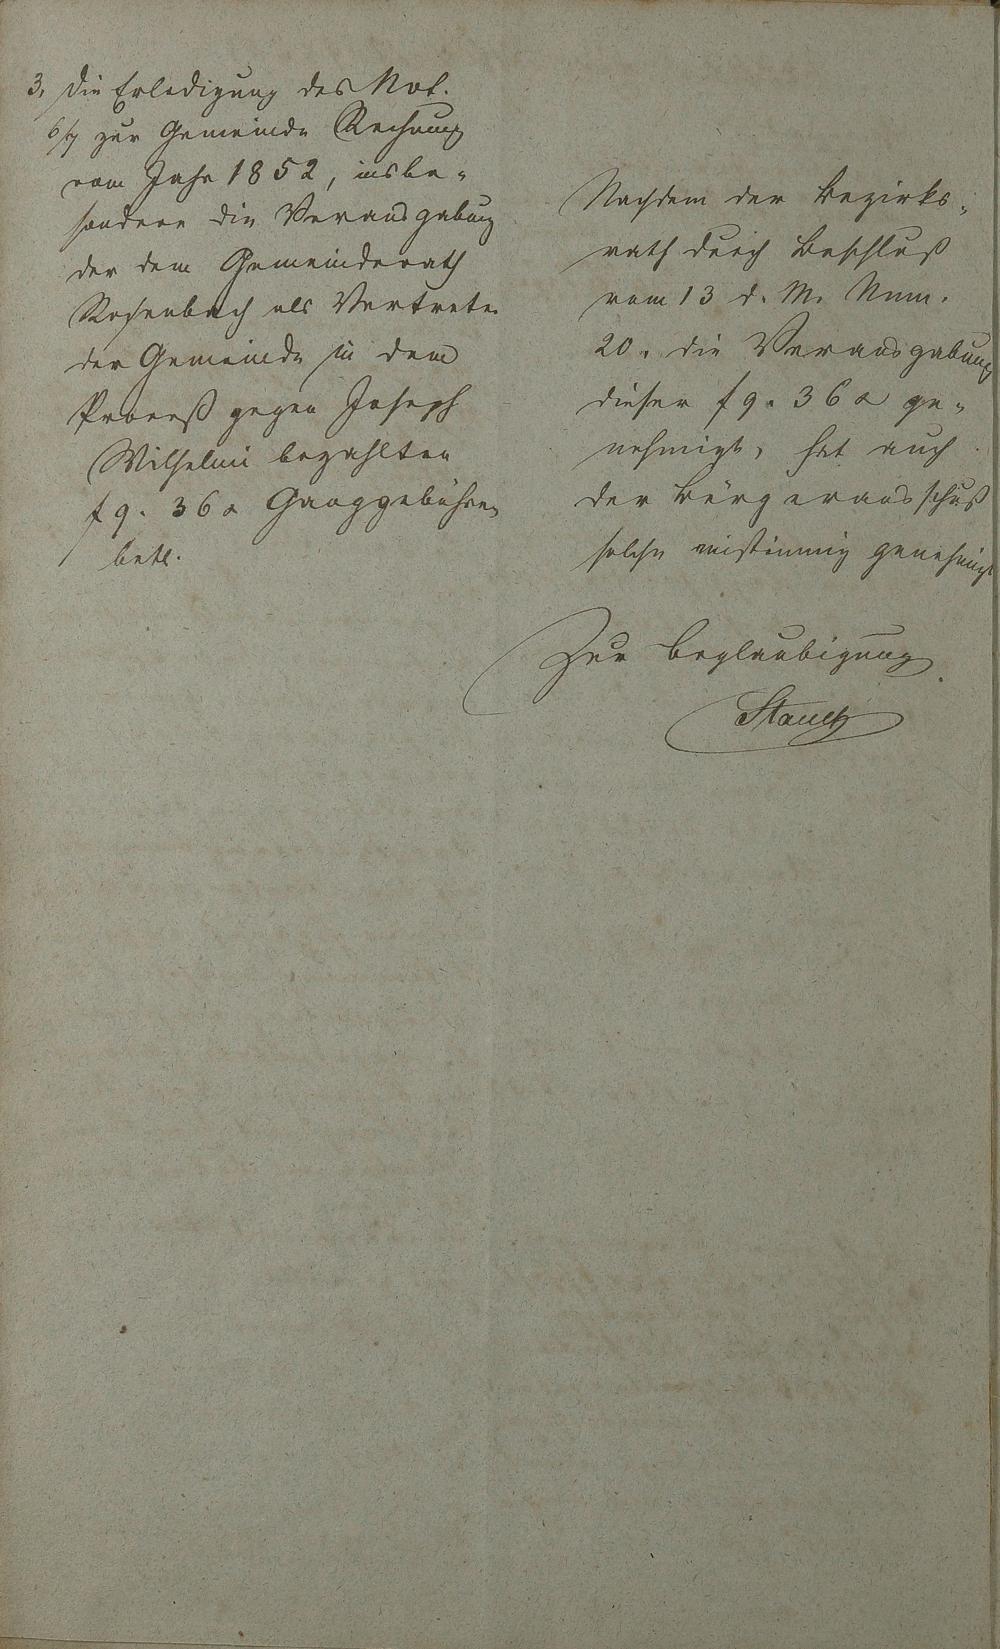 3, die Erledigung des Not.
6/7 zur Gemeinde Rechnung
vom Jahr 1852, insbe-
sondere die Verausgabung
der dem Gemeinderath
Rosenbach als Vertreter
der Gemeinde in dem
Proceß gegen Joseph
Wilhelmi bezahlten
f 9. 36 x Ganggebühren
betr.
Nachdem der Bezirks-
rath durch Beschluß
vom 13 d. M. Num.
20. die Verausgabung
dieser f 9. 36 x ge-
nehmigt, hat auch
der Bürgerausschuß
solche einstimmig genehmigt
Zur Beglaubigung.